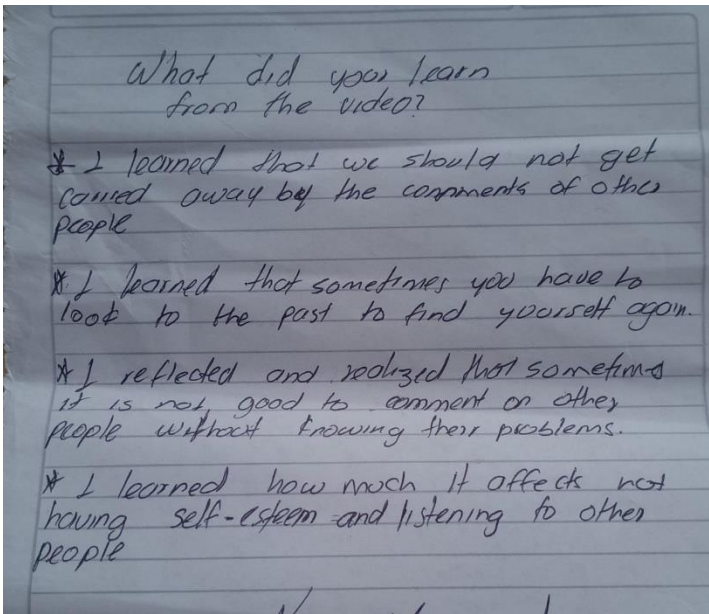 What did you learn
from the video?
* I learned that we should not get
carried away by the comments of other
people
* I learned that sometimes you have to
look to the past to find yourself again.
* I reflected and realized that sometimes
it is not good to comment on other
people without knowing their problems.
* I learned how much it affects not
having self-esteem and listening to other
people